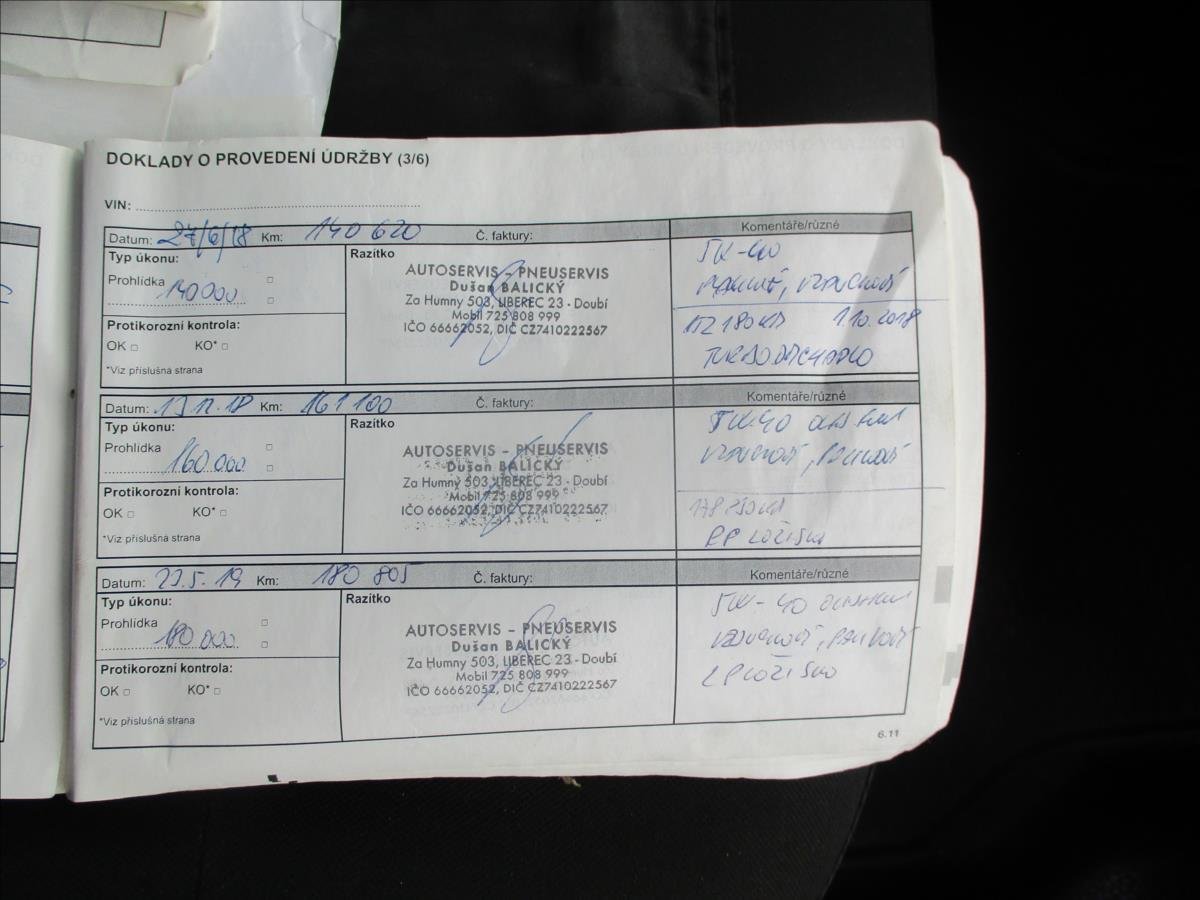 DOKLADY O PROVEDENÍ ÚDRŽBY (3/6)
VIN:
Datum: 27/6/18 Km: 140 620 Č. faktury:
Komentáře/různé
Typ úkonu:
Prohlídka
140 000
Protikorozní kontrola:
OK KO*
*Viz příslušná strana
Razítko
AUTOSERVIS - PNEUSERVIS
Dušan BALICKÝ
Za Humny 503, LIBEREC 23 - Doubí
Mobil 725 808 999
IČO 66662052, DIČ CZ7410222567
5W-40
1.10.2018
TURBODMYCHADLO
Datum: Km: 161 100 Č. faktury:
Komentáře/různé
Typ úkonu:
Prohlídka
160 000
Protikorozní kontrola:
OK KO*
*Viz příslušná strana
Razítko
AUTOSERVIS - PNEUSERVIS
Dušan BALICKÝ
Za Humny 503, LIBEREC 23 - Doubí
Mobil 725 808 999
IČO 66662052, DIČ CZ7410222567
5W-40
PP LOŽISKO
Datum: 23.5.19 Km: 180 805 Č. faktury:
Komentáře/různé
Typ úkonu:
Prohlídka
180 000
Protikorozní kontrola:
OK KO*
*Viz příslušná strana
Razítko
AUTOSERVIS - PNEUSERVIS
Dušan BALICKÝ
Za Humny 503, LIBEREC 23 - Doubí
Mobil 725 808 999
IČO 66662052, DIČ CZ7410222567
5W-40
LP LOŽISKO
6.11